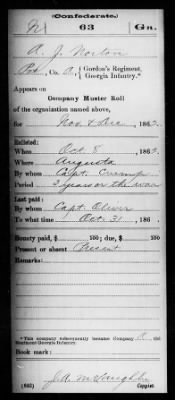 (Confederate.)
N 63 Ga.
A. J. Norton
Pvt., Co. A, Gordon's Regiment, Georgia Infantry.*
Appears on
Company Muster Roll
of the organization named above,
for Nov & Dec, 1862.
Enlisted:
When Oct 8, 1862.
Where Augusta
By whom Capt.
Period 3 years or the war
Last paid:
By whom Capt. Oliver
To what time Oct. 31, 186 .
Bounty paid, $ 100; due, $ 100
Present or absent Present
Remarks:
*This company subsequently became Company
Regiment Georgia Infantry.
Book mark:
J. A. McLaughlin
Copyist.